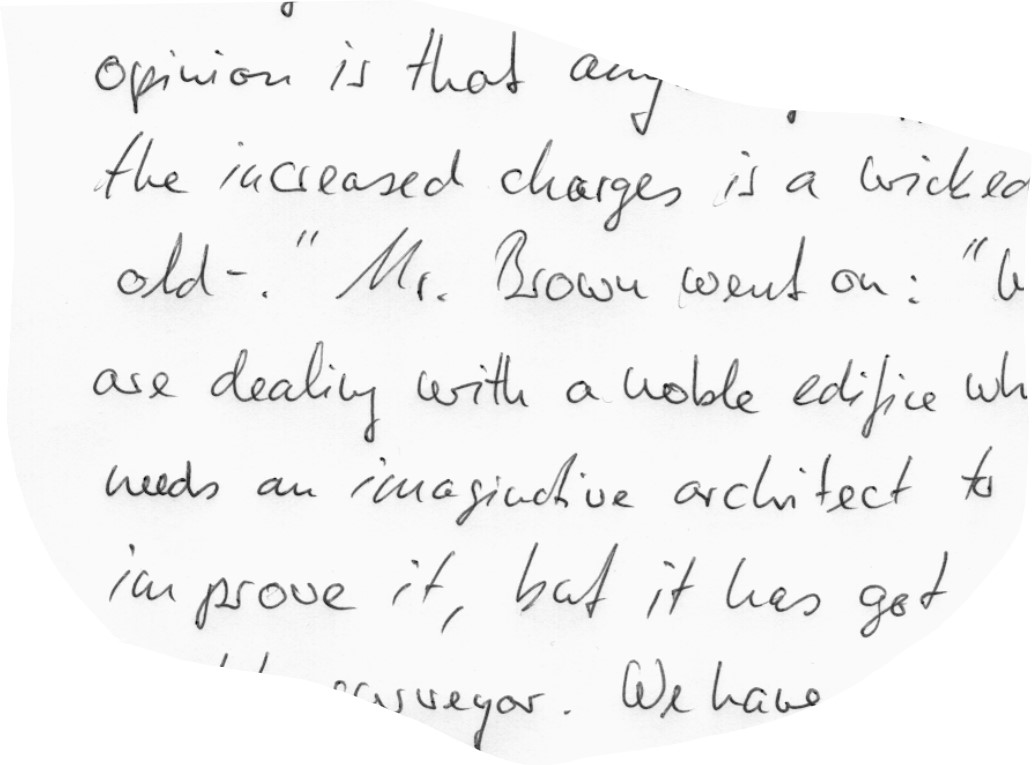 opinion is that any
the increased charges is a wicked
old-." Mr. Brown went on: "
are dealing with a noble edifice
needs an imaginative architect to
improve it, but it has got
surveyor. We have